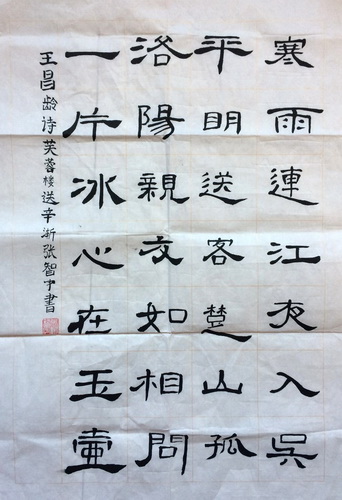 寒雨連江夜入吳
平明送客楚山孤
洛陽親友如相問
一片冰心在玉壺
王昌龄诗芙蓉楼送辛渐张智中書